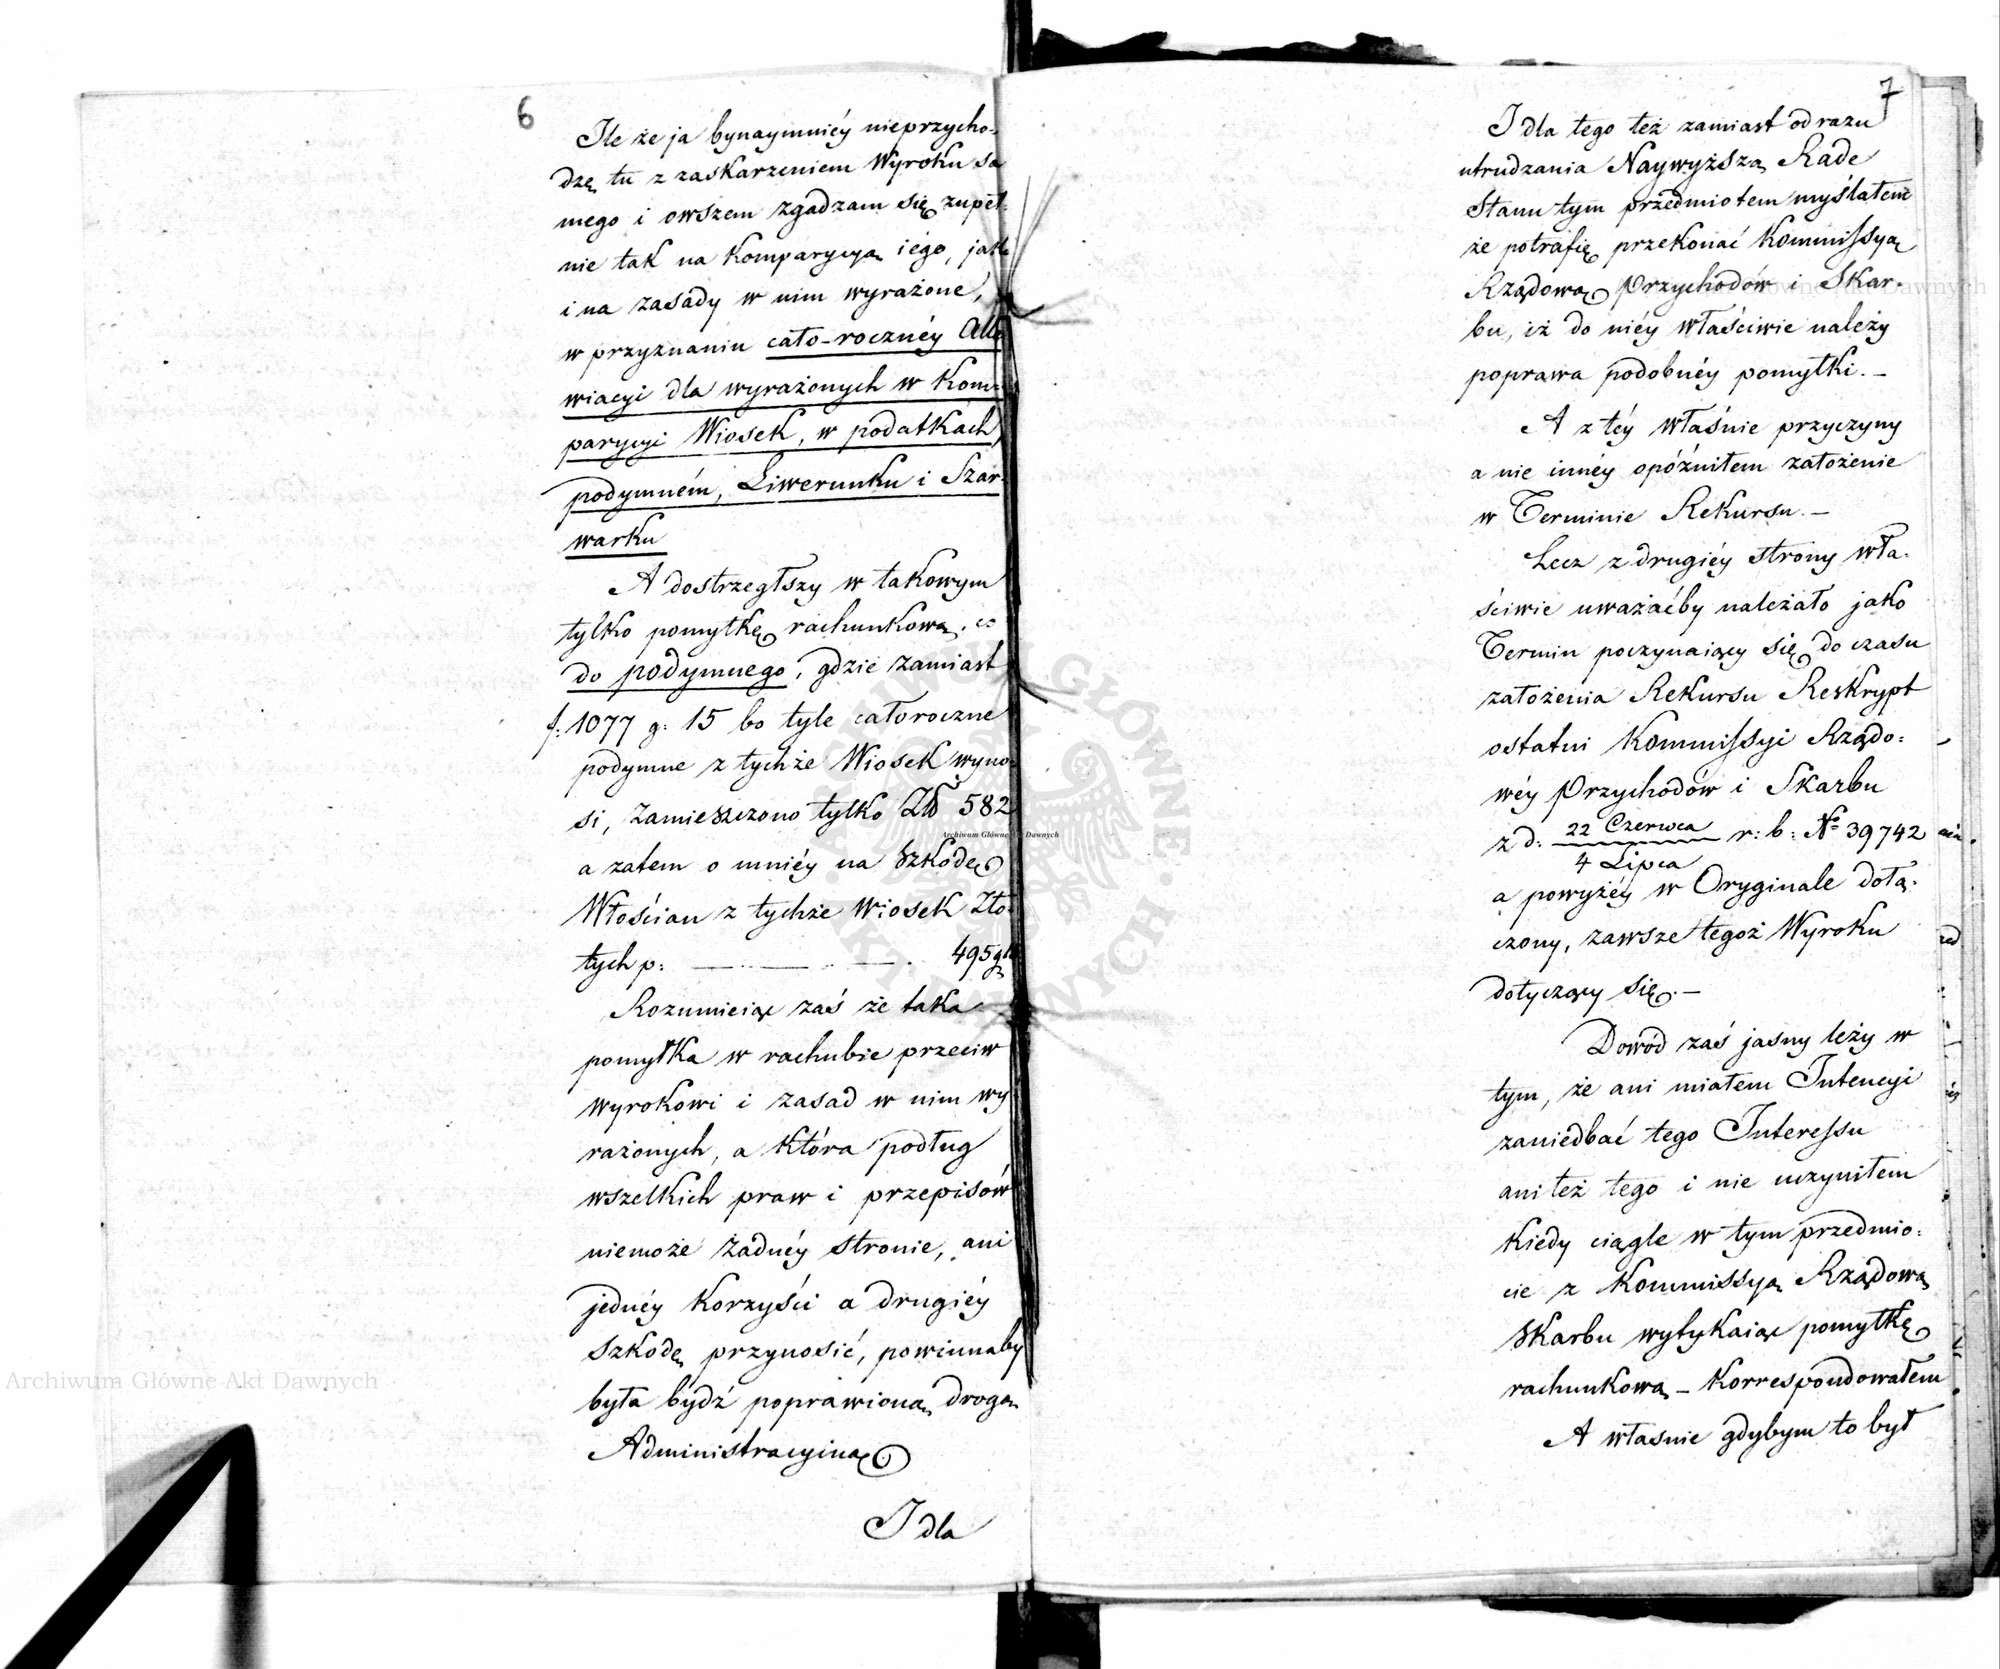 6
Ile że ja bynaymniéy nieprzycho-
dzę tu z zaskarzeniem Wyroku sa
mego i owszem zgadzam się zupeł-
nie tak na Komparycyą iego, jak
i na zasady w nim wyrażone,
w przyznaniu cało-rocznéy Alle
wiacyi dla wyrażonych w Kom-
parycyi Wiosek, w podatkach
podymném, Liwerunku i Szar-
warku
A dostrzegłszy w takowym
tylko pomyłkę rachunkową, co
do podymnego, gdzie zamiast
f: 1077 g: 15 bo tyle całoroczne
podymne z tychże Wiosek wyno-
si, zamieszczono tylko Zł 582
a zatem o mniéy na szkodę
Włościan z tychże Wiosek Zło-
tych p: — — — 495 g
Rozumieiąc zaś że taka
pomyłka w rachubie przeciw
wyrokowi i zasad w nim wy
rażonych, a która podług
wszelkich praw i przepisów
niemoże żadnéy stronie, ani
jednéy korzyści a drugiéy
szkodę przynosić, powinnaby
była bydź poprawioną drogą
Administracyiną
I dla
7
I dla tego też zamiast od razu
utrudzania Naywyższą Radę
Stanu tym przedmiotem myślałem
że potrafię przekonać Kommissyą
Rządową Przychodów i Skar-
bu, iż do niéy właściwie należy
poprawa podobnéy pomyłki. —
A z téy właśnie przyczyny
a nie innéy opóźniłem założenie
w Terminie Rekursu. —
Lecz z drugiéy strony wła-
ściwie uważaćby należało jako
Termin poczynaiący się do czasu
założenia Rekursu Reskrypt
ostatni Kommissyi Rządo-
wéy Przychodów i Skarbu
z d: 22 Czerwca / 4 Lipca r: b: No 39742
a powyżéy w Oryginale dołą-
czony, zawsze tegoż Wyroku
dotyczący się. —
Dowód zaś jasny leży w
tym, że ani miałem Intencyi
zaniedbać tego Interessu
ani też tego i nie uczyniłem
kiedy ciągle w tym przedmio-
cie z Kommissyą Rządową
Skarbu wytykaiąc pomyłkę
rachunkową — Korrespondowałem
A własnie gdybym to był
Archiwum Główne Akt Dawnych